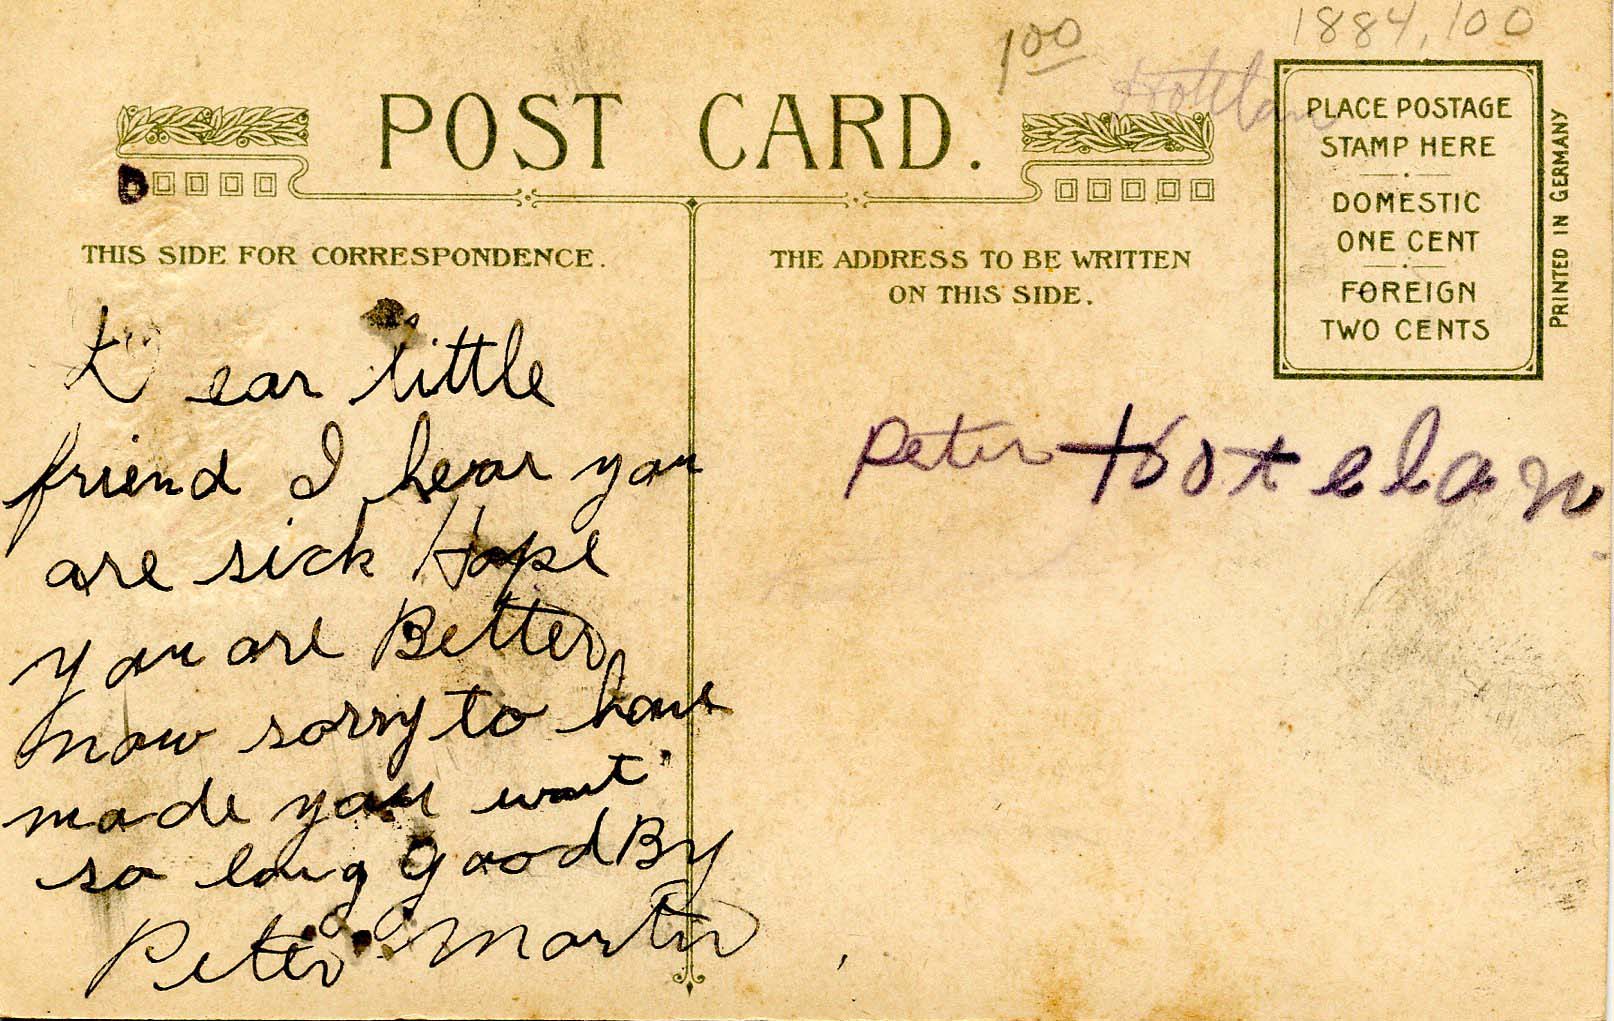 1884,100
1 00
POST CARD.
PLACE POSTAGE
STAMP HERE
DOMESTIC
ONE CENT
FOREIGN
TWO CENTS
PRINTED IN GERMANY
THIS SIDE FOR CORRESPONDENCE.
THE ADDRESS TO BE WRITTEN
ON THIS SIDE.
Dear little
friend I hear you
are sick Hope
you are Better
now sorry to have
made you wait
so long good By
Peter Martin
Peter Hotelan